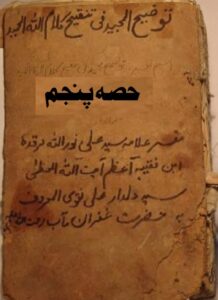 توضیح المجید فی تنقیح کلام اللہ الحمید
حصہ پنجم
مفسر علامہ سید علی نور اللہ مرقدہ
ابن فقیہ اعظم آیت اللہ العظمیٰ
سید دلدار علی نقوی المعروف
بہ حضرت غفران مآب